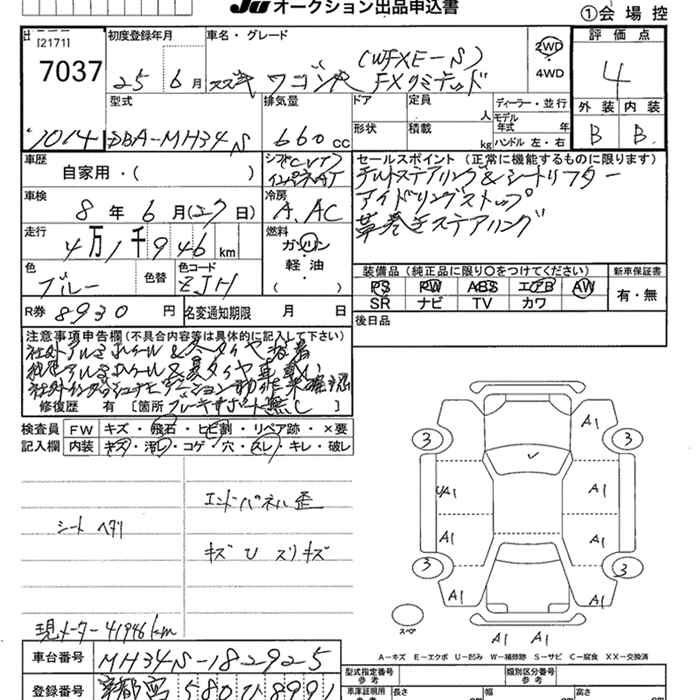 JU オークション出品申込書
①会場控
[2171]
7037
1014
初度登録年月
25年6月
車名・グレード
スズキ ワゴンR (WFXE-S)
FXリミテッド
2WD
4WD
評価点
4
外装 内装
B B
型式
DBA-MH34S
排気量
660cc
ドア
形状
定員 人
積載 kg
ディーラー・並行
モデル年式 年
ハンドル 左・右
車歴
自家用・( )
シフト CVT
インパネAT
車検
8年6月(27日)
冷房
A. AC
走行
4万1千946km
燃料
ガソリン
軽・油
( )
色
ブルー
色替
色コード
ZJH
R券 8930円
名変通知期限 月 日
セールスポイント (正常に機能するものに限ります)
チルトステアリング&シートリフター
アイドリングストップ
革巻きステアリング
装備品 (純正品に限り〇をつけてください)
PS PW ABS エアB AW
SR ナビ TV カワ
新車保証書
有・無
後日品
注意事項申告欄(不具合内容等は具体的に記入して下さい)
社外アルミホイール&冬タイヤ装着
純正アルミホイール&夏タイヤ車載
修復歴 有 [箇所 ブレーキサポート無し
検査員記入欄
FW キズ・飛石・ヒビ割・リペア跡・×要
内装 キズ・汚レ・コゲ・穴・スレ・キレ・破レ
エンドパネル歪
シート ヘタリ
キズ U スリキズ
現メーター41946km
車台番号 MH34S-182925
登録番号 宇都宮 580 ひ 8991
3 3 3 3
A1
UA1 A1
A1 A1
A1 A1 A1
スペア
A-キズ E-エクボ U-凹み W-補修跡 S-サビ C-腐食 XX-交換済
型式指定番号
参考
類別区分番号
参考
車庫証明用
参考
長さ cm
幅 cm
高さ cm